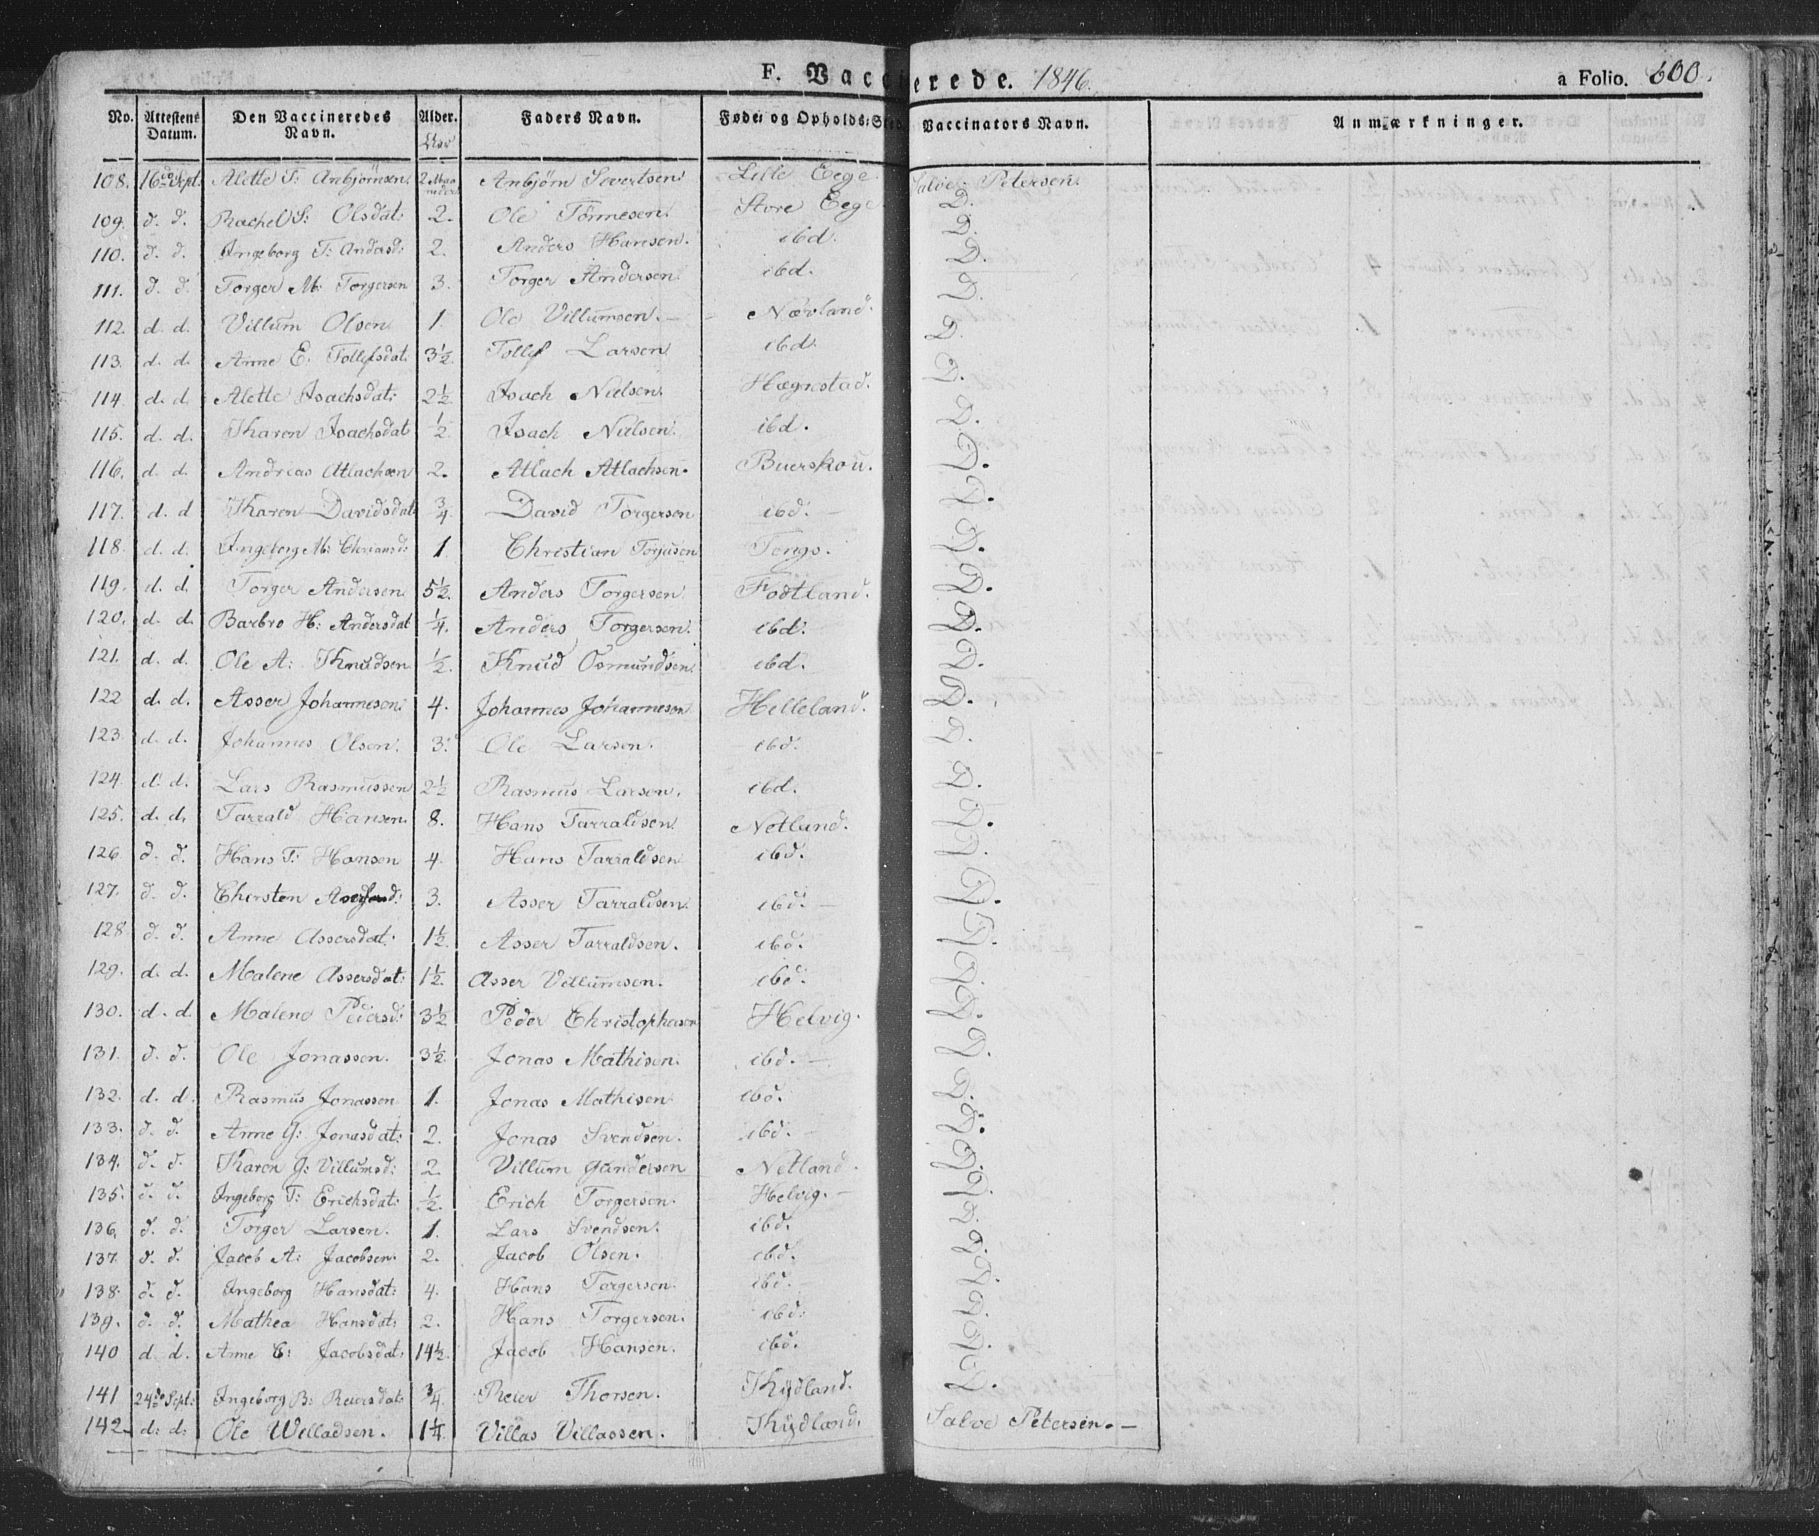 F. Vaccinerede. 1846. a Folio. 600.
No. Attestens Datum. Den Vaccineredes Navn. Alder. Aar Faders Navn. Føde- og Opholds-Sted Vaccinators Navn. Anmærkninger.
108. 16de Sept. Alette T: Anbjörnsen 2 Maaneder Anbjörn Sivertsen Lille Eege Salve Petersen.
109. d. d. Rachel S: Olsdat: 2. Ole Tönnesen Store Eege D.
110. d. d. Ingeborg T: Andersd: 2. Anders Hansen. ibd. D.
111. d. d. Torger M: Torgersen 3. Torger Andersen ibd. D.
112. d. d. Villum Olsen 1. Ole Villumsen. Nævland. D.
113. d. d. Anne E: Tollefsdat: 3½ Tollef Larsen ibd. D.
114. d. d. Alette Isachsdat: 2½ Isach Nielsen Hægnestad. D.
115. d. d. Karen Isachsdat ½ Isach Nielsen ibd. D.
116. d. d. Andreas Atlachsen 2. Atlach Atlachsen. Buerskou. D.
117. d. d Karen Davidsdat ¾ David Torgersen ibd. D.
118. d. d. Ingeborg M: Chriansd: 1 Christian Torjusen Tengs. D.
119. d. d. Torger Andersen 5½. Anders Torgersen Fodtland. D.
120. d. d. Barbro H: Andersdat ¼. Anders Torgersen. ibd. D.
121. d. d. Ole A: Knudsen ½ Knud Osmundsen ibd. D.
122 d. d. Asser Johannesen 4. Johannes Johannesen Helleland. D.
123. d. d. Johannes Olsen. 3. Ole Larsen. ibd. D.
124. d. d. Lars Rasmussen 2½ Rasmus Larsen. ibd. D.
125. d. d. Tarrald Hansen. 8. Hans Tarraldsen Netland. D.
126. d. d. Hans T: Hansen 4. Hans Tarraldsen ibd. D.
127. d. d. Chirsten 3. Asser Tarraldsen. ibd. D.
128 d. d. Anne Assersdat. 1½ Asser Tarraldsen. ibd. D.
129. d. d. Malene Assersdat: 1½. Asser Villumsen. ibd. D.
130. d. d. Malene Pedersd: 3½ Peder Christophersen Helvig. D.
131. d. d. Ole Jonassen. 3½. Jonas Mathisen. ibd. D.
132. d. d. Rasmus Jonassen 1. Jonas Mathisen ibd. D.
133. d. d. Anne G: Jonasdat: 2. Jonas Svendsen. ibd. D.
134. d. d. Karen G: Villumsd: 2. Villum Gundersen Netland. D.
135. d. d. Ingeborg T: Erichsdat: ½. Erich Torgersen. Helvig. D.
136. d. d. Torger Larsen. 1. Lars Svendsen. ibd. D.
137 d. d. Jacob A: Jacobsen 2. Jacob Olsen. ibd. D.
138. d. d. Ingeborg Hansdat: 4. Hans Torgersen. ibd. D.
139. d. d. Mathea Hansdat: 2. Hans Torgersen. ibd. D.
140 d. d. Anne E: Jacobsdat: 14½. Jacob Hansen. ibd. D.
141 24de Sept: Ingeborg B: Reiersdat: ¾ Reier Thorsen. Kydland. D.
142. d. d: Ole Welladsen. 1¼. Villas Villassen. Kydland. Salve Petersen.